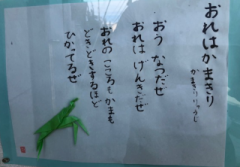 おれはかまきり
かまきりりゅうじ
おう なつだぜ
おれは げんきだぜ
おれの こころも かまも
どきどきするほど
ひかってるぜ